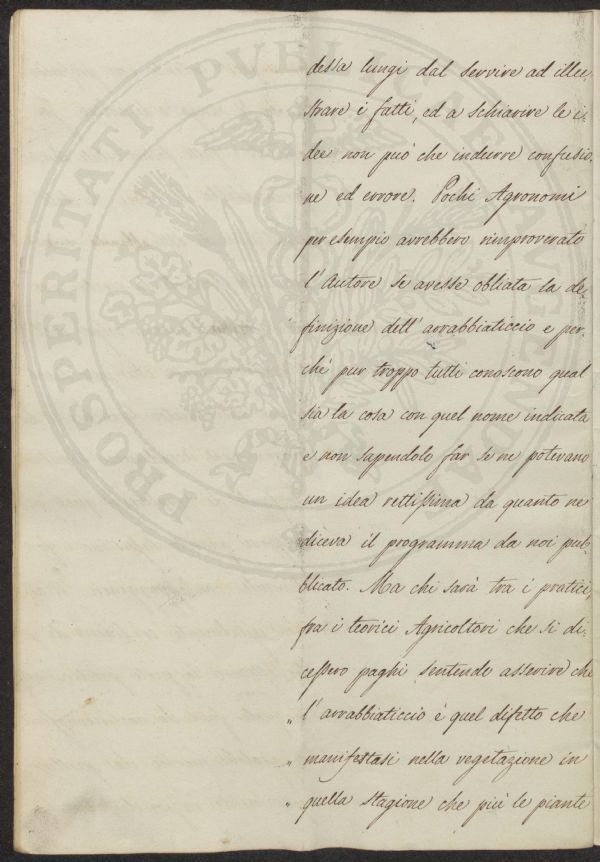 dessa lungi dal servire ad illu-
strare i fatti, ed a schiarire le i-
dee non può che indurre confusio-
ne ed errore. Pochi Agronomi
per esempio avrebbero rimproverato
l'Autore se avesse obliata la de-
finizione dell'arrabbiaticcio e per-
chè pur troppo tutti conoscono qual
sia la cosa con quel nome indicata
e non sapendolo far se ne potevano
un idea rettissima da quanto ne
diceva il programma da noi pub-
blicato. Ma chi sarà tra i pratici,
fra i teorici Agricoltori che si di-
cessero paghi sentendo asserire che
„ l'arrabbiaticcio è quel difetto che
„ manifestasi nella vegetazione in
„ quella stagione che più le piante
PROSPERITATI PVBLICAE AVGENDAE